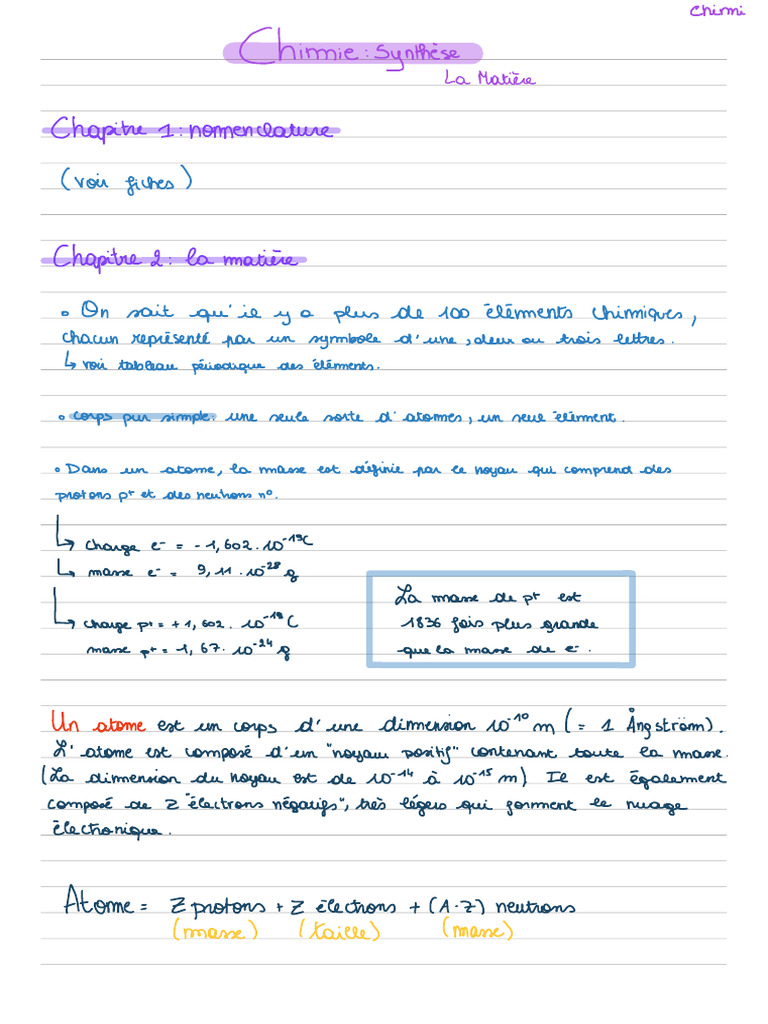 Chimi
Chimie : Synthèse
La Matière
Chapitre 1 : nomenclature
(voir fiches)
Chapitre 2 : la matière
• On sait qu'il y a plus de 100 éléments chimiques,
chacun représenté par un symbole d'une, deux ou trois lettres.
↳ voir tableau périodique des éléments.
• corps pur simple: une seule sorte d'atomes, un seul élément.
• Dans un atome, la masse est définie par le noyau qui comprend des
protons p⁺ et des neutrons n°.
↳ charge e⁻ = -1,602.10⁻¹⁹C
↳ masse e⁻ = 9,11.10⁻²⁸ g
↳ charge p⁺ = +1,602.10⁻¹⁹ C
masse p⁺ = 1,67.10⁻²⁴ g
La masse de p⁺ est
1836 fois plus grande
que la masse de e⁻.
Un atome est un corps d'une dimension 10⁻¹⁰ m (= 1 Ångström).
L'atome est composé d'un "noyau positif" contenant toute la masse.
(La dimension du noyau est de 10⁻¹⁴ à 10⁻¹⁵ m) Il est également
composé de Z "électrons négatifs", très légers qui forment le nuage
électronique.
Atome = Z protons + Z électrons + (A-Z) neutrons
(masse) (taille) (masse)